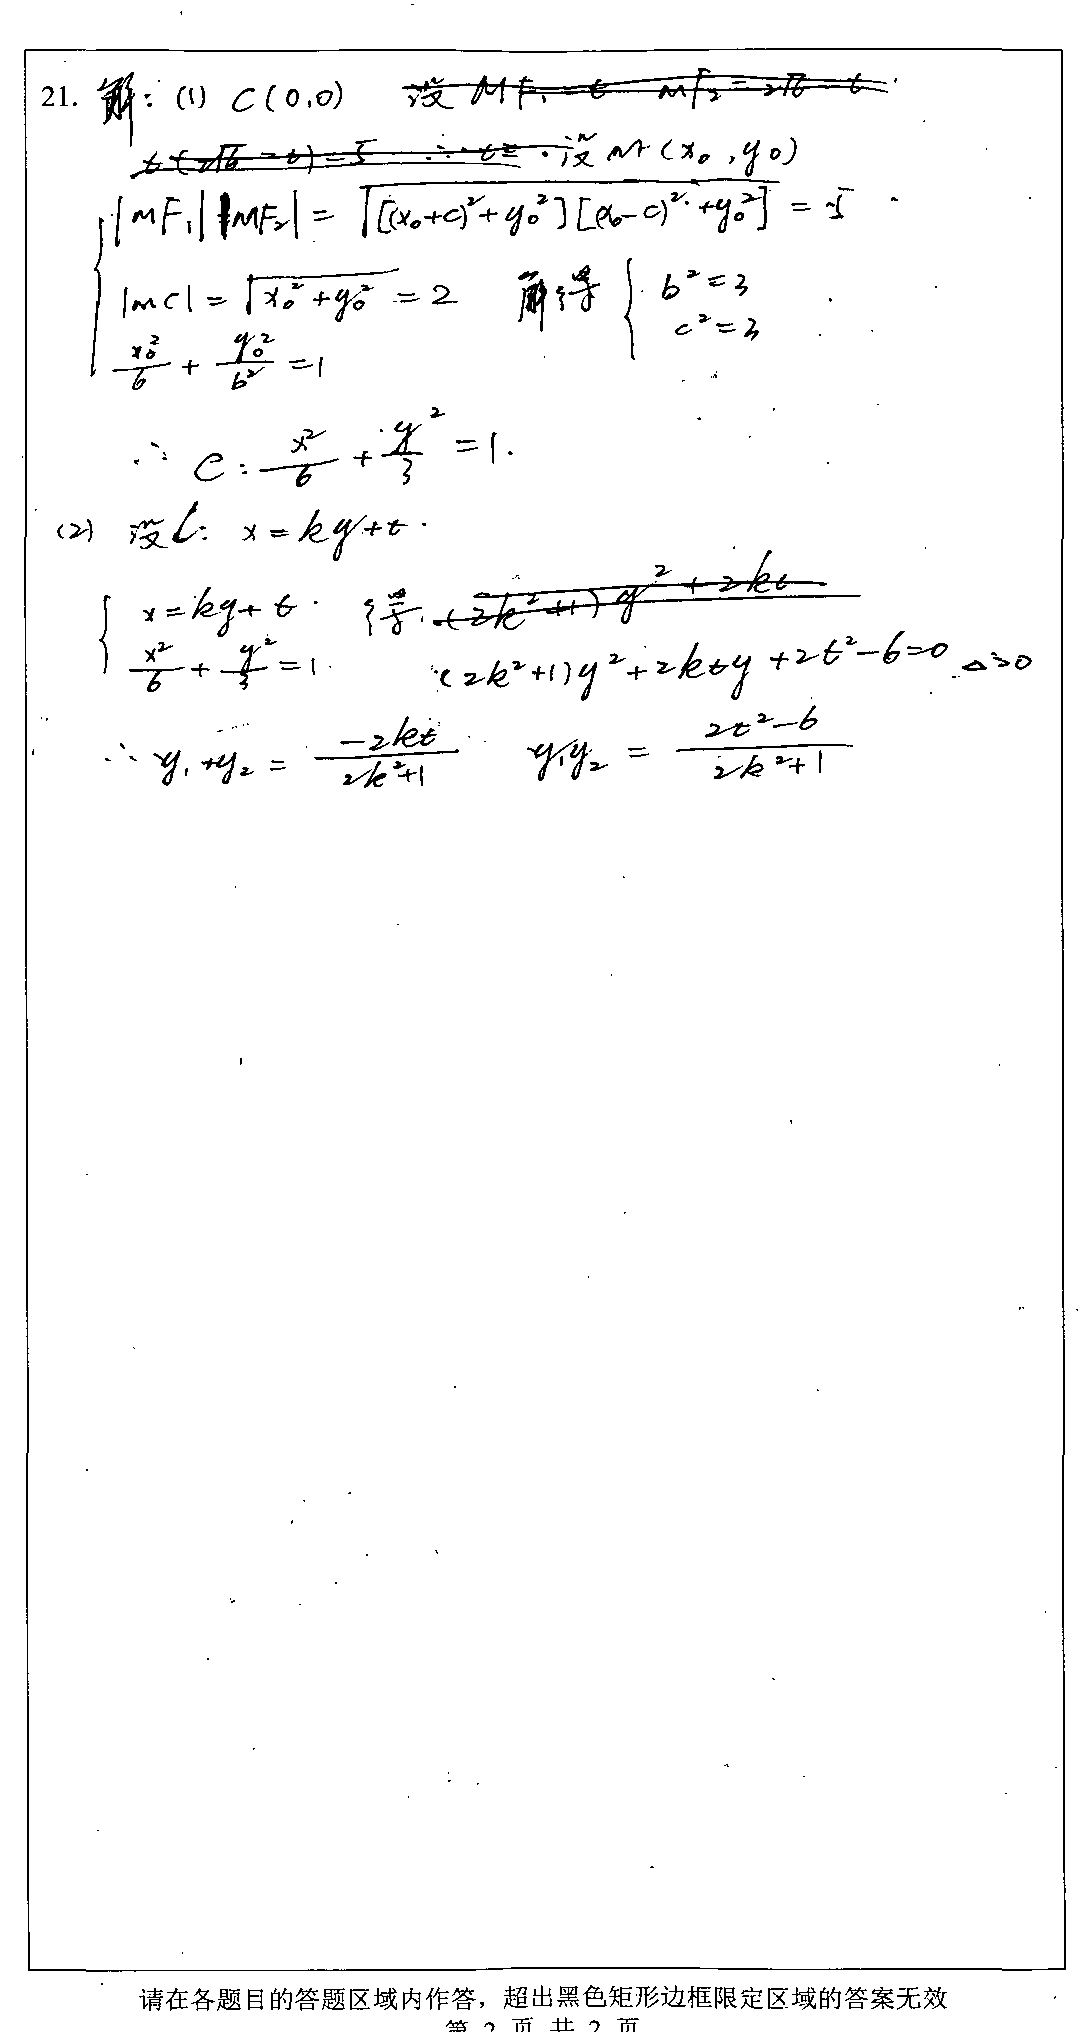 21. 解：(1) C(0,0) 设 MF₁=t MF₂=2√6-t
t(2√6-t)=5 ∴t= 设M(x₀,y₀)
|MF₁||MF₂|=√[(x₀+c)²+y₀²][(x₀-c)²+y₀²]=5
|MC|=√x₀²+y₀²=2 解得 { b²=3 c²=3
x₀²/6+y₀²/b²=1
∴ C: x²/6+y²/3=1.
(2) 设l: x=ky+t.
{ x=ky+t. 得. (2k²+1)y²+2kt
x²/6+y²/3=1. (2k²+1)y²+2kty+2t²-6=0 △>0
∴ y₁+y₂=-2kt/2k²+1 y₁y₂=2t²-6/2k²+1
请在各题目的答题区域内作答，超出黑色矩形边框限定区域的答案无效
第 2 页 共 2 页